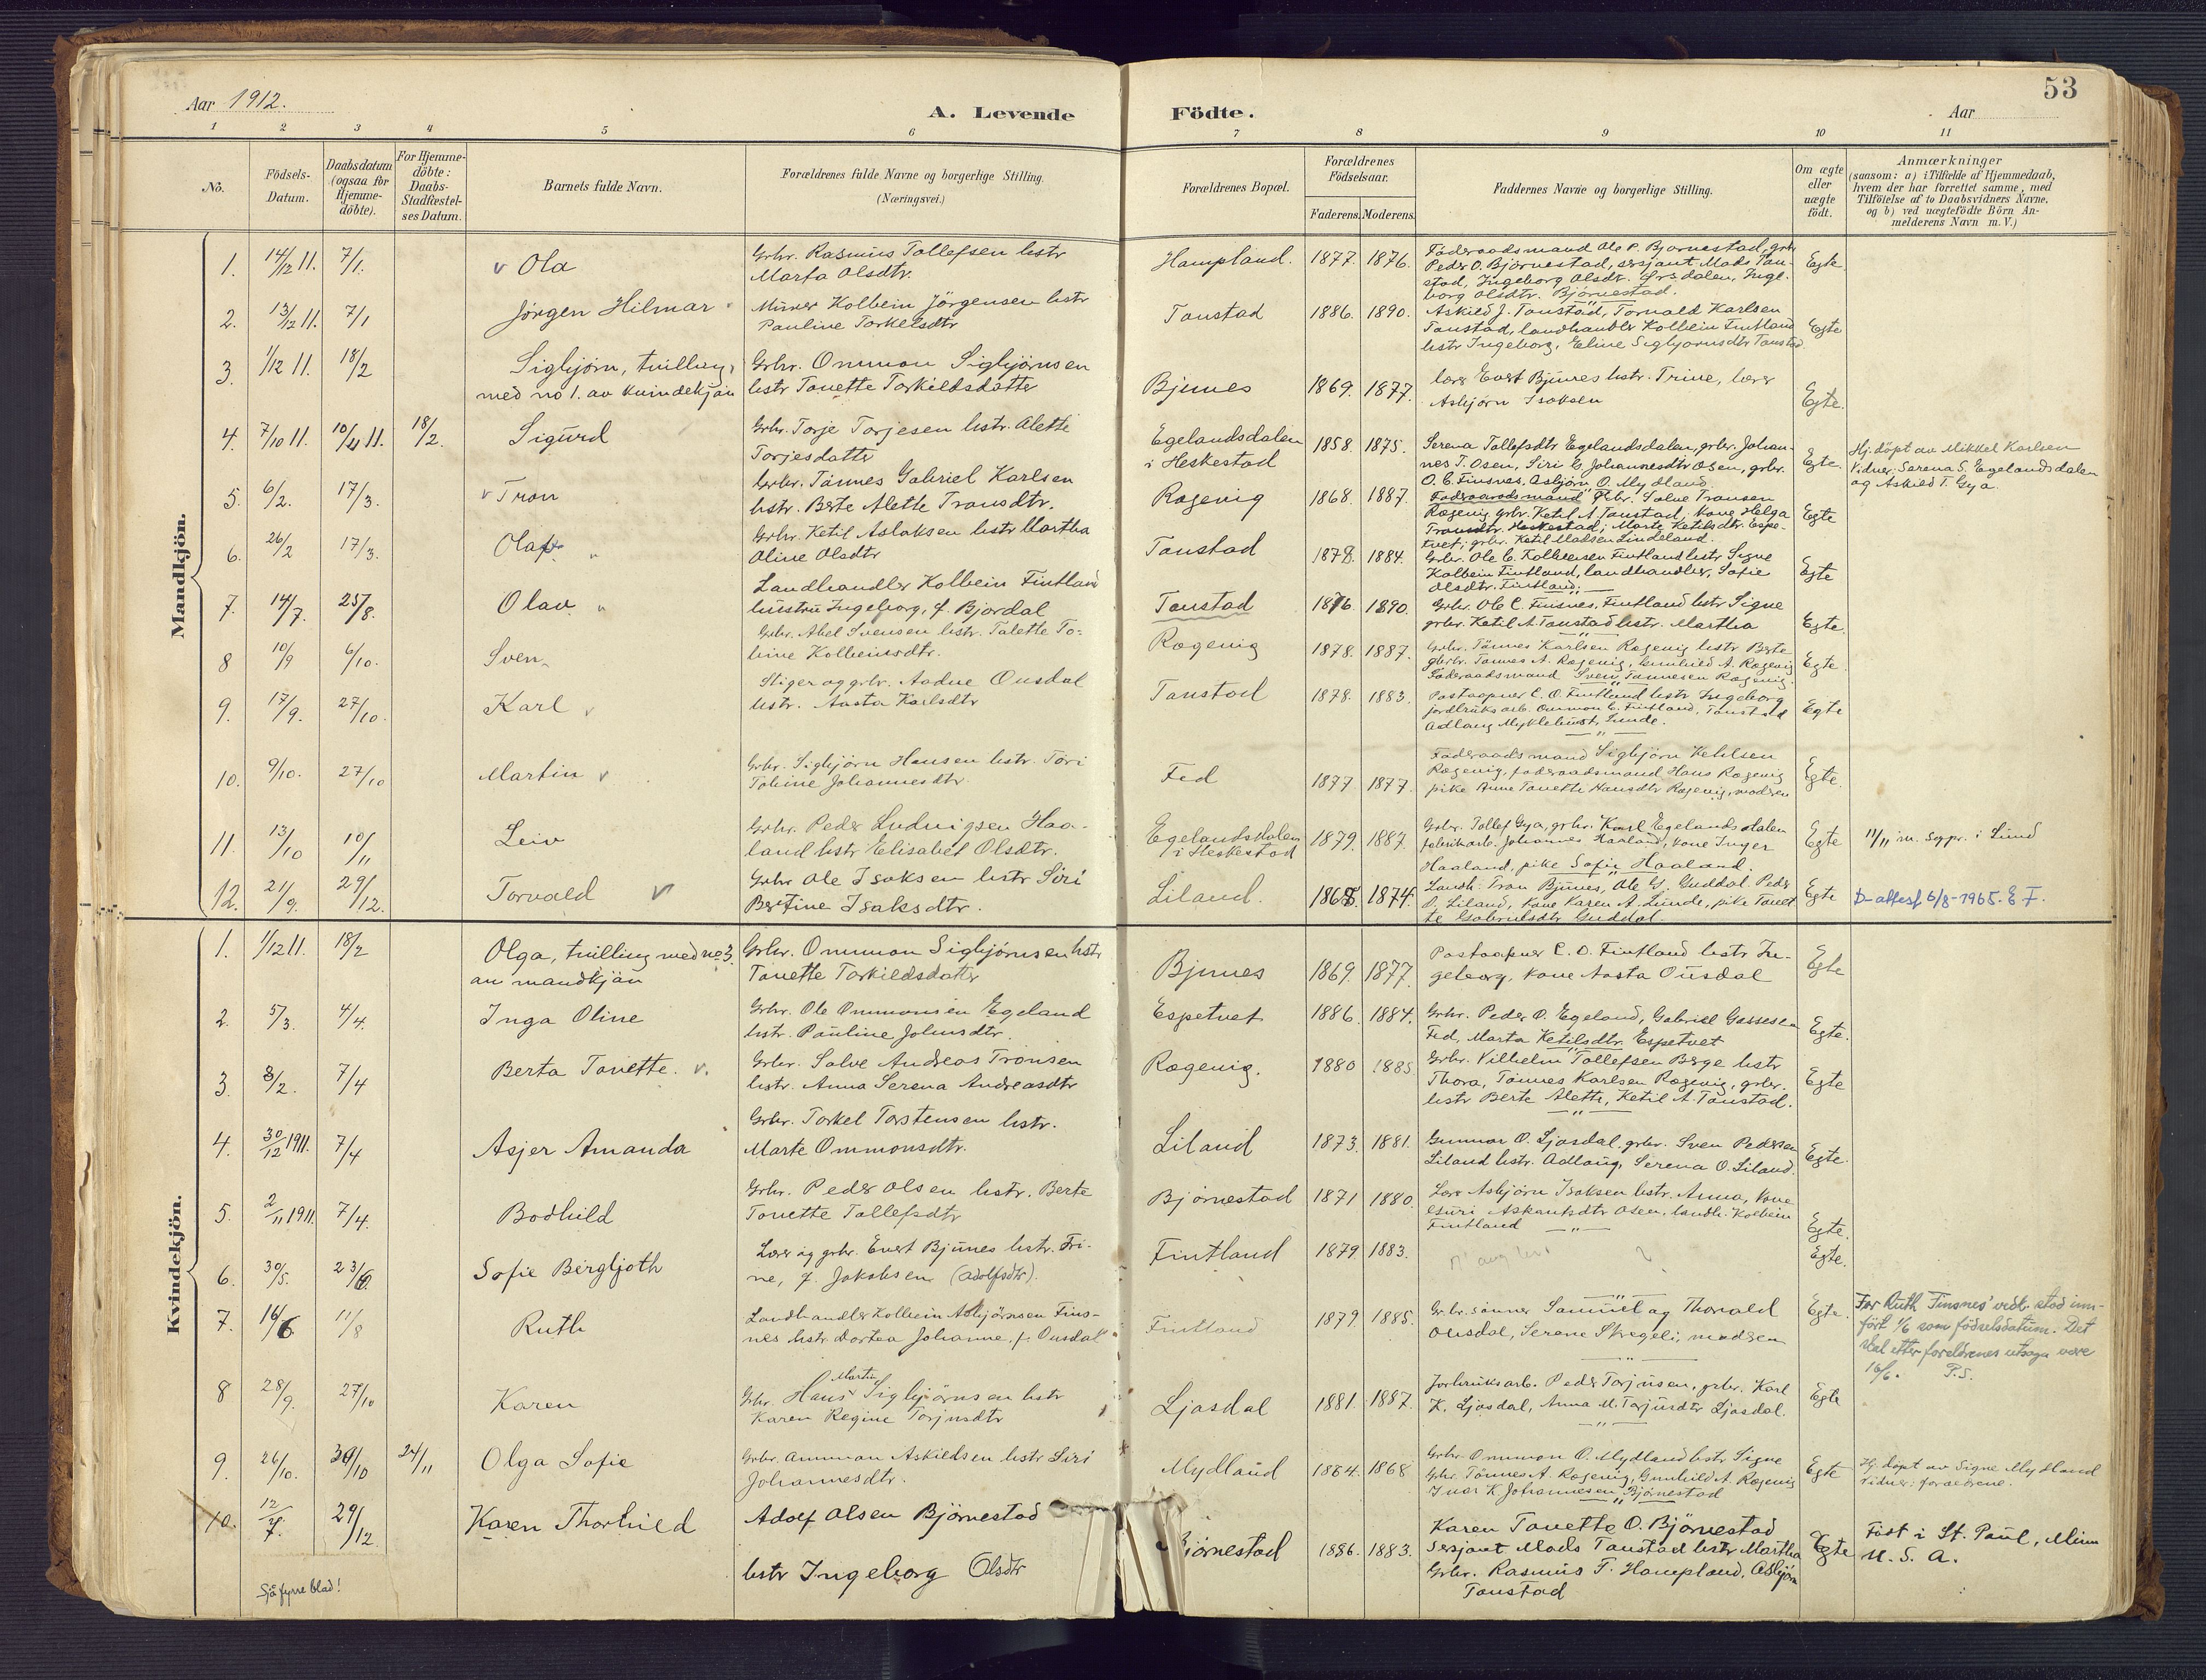 53
Aar 1912.
A. Levende Födte.
Aar
1 2 3 4 5 6 7 8 9 10 11
No.
Födsels-
Datum.
Daabsdatum
(ogsaa for
Hjemme-
döbte).
For Hjemme-
döbte:
Daabs-
Stadfæstel-
ses Datum.
Barnets fulde Navn.
Forældrenes fulde Navne og borgerlige Stilling.
(Næringsvei.)
Forældrenes Bopæl.
Forældrenes
Födselsaar.
Faderens. Moderens.
Faddernes Navne og borgerlige Stilling.
Om ægte
eller
uægte
födt.
Anmærkninger
(saasom: a) i Tilfælde af Hjemmedaab,
hvem der har forrettet samme, med
Tilföielse af to Daabsvidners Navne,
og b) ved uægtefödte Börn An-
melderens Navn m. V.)
Mandkjön.
1. 14/12 11. 7/1. v Ola
Grbr. Rasmus Tollefsen hstr
Marta Olsdtr.
Hampland. 1877. 1876.
Föderaadsmand Ole P. Bjørnestad, grbr
Peder O. Bjørnestad, sersjant Mads Tan-
stad, Ingeborg Olsdtr. Ørsdalen, Inge-
borg Olsdtr. Bjørnestad.
Egte
2. 13/12 11. 7/1 Jørgen Hilmar
Murer Kolbein Jörgensen hstr
Pauline Torkelsdtr
Tonstad 1886. 1890.
Askild J. Tonstad, Torvald Karlsen
Tonstad, landhandler Kolbein Fintland
hstr Ingeborg, Eline Sigbjørnsdtr Tonstad.
Egte
3. 1/12 11. 18/2 Sigbjörn, tvilling
med no 1. av kvindekjön
Grbr. Ommon Sigbjörnsen
hstr Tonette Torkildsdatter
Bjunes 1869. 1877.
lærer Evert Bjunes hstr. Trine, lærer
Asbjörn Isaksen
Egte.
4. 7/10 11. 10/11 11. 18/2. Sigurd
Grbr. Torje Torjesen hstr. Alette
Torjesdatter
Egelandsdalen
i Heskestad
1858. 1875.
Serena Tollefsdtr Egelandsdalen, grbr. Johan-
nes T. Osen, Siri C. Johannesdtr Osen, grbr.
O. C. Finsnes, Asbjørn O. Mydland.
Egte.
Hj. döpt av Mikkel Karlsen
Vidner: Serena S. Egelandsdalen
og Askild T. Gya.
5. 6/2. 17/3. v Tron
Grbr. Tönnes Gabriel Karlsen
hstr. Berte Alette Tronsdtr.
Røgevig 1868. 1887.
Föderaadsmand Grbr. Salve Tronsen
Røgevig grbr. Ketil A. Tonstad, kone Helga
Tronsdtr. Heskestad; Marte Ketilsdtr. Espe-
tvet; grbr. Ketil Madsen Lindeland.
Egte
6. 26/2 17/3. Olaf
Grbr. Ketil Aslaksen hstr Martha
Oline Olsdtr
Tonstad 1878. 1884.
Grbr. Ole C. Kolbeinsen Fintland hstr Signe
Kolbein Fintland, landhandler, Sofie
Olsdtr. Fintland.
Egte
7. 14/7. 25/8. Olav
Landhandler Kolbein Fintland
hustru Ingeborg, f. Bjordal
Tonstad 1876. 1890.
Grbr. Ole C. Finsnes, Fintland hstr Signe
grbr. Ketil A. Tonstad hstr. Martha
Egte.
8 10/9 6/10. Sven
Grbr. Abel Svensen hstr. Talette To-
bine Kolbeinsdtr.
Røgevig 1878. 1887.
Grbr. Tönnes Karlsen Røgevig hstr Berte
grbr. Tønnes A. Røgevig, Gunhild A. Røgevig
Föderaadsmand Sven Tønnesen Røgevig.
Egte.
9. 17/9. 27/10. Karl
Stiger og grbr. Aadne Ousdal
hstr. Aasta Karlsdtr
Tonstad 1878. 1883.
Postaapner C. O. Fintland hstr Ingeborg
jordbruksarb. Ommon C. Fintland, Tonstad
Adlaug Myklebust, Lunde.
Egte
10. 9/10. 27/10 Martin
Grbr. Sigbjörn Hansen hstr. Töri
Tobine Johannesdtr
Fed 1877. 1877.
Föderaadsmand Sigbjörn Ketilsen
Røgevig, föderaadsmand Hans Røgevig
pike Anne Tonette Hansdtr Røgevig, moderen
Egte.
11. 13/10 10/11 Leiv
Grbr. Peder Ludvigsen Haa-
land hstr Elisabet Olsdtr.
Egelandsdalen
i Heskestad
1879. 1887.
Grbr. Tollef Gya, grbr. Karl Egelandsdalen
fabrikarb. Johannes Haaland, kone Inger
Haaland, pike Sofie Haaland.
Egte
11/11 in. sogpr. i Lund
12. 21/9. 29/12. Torvald
Grbr Ole Isaksen hstr Siri
Bertine Isaksdtr.
Liland. 1865. 1874.
Landh. Tron Bjunes, Ole G. Guddal. Peder
P. Liland, kone Karen A. Lunde, pike Tonet-
te Gabrielsdtr Guddal
Egte
D-attest 6/8-1965. E F.
Kvindekjön.
1. 1/12 11. 18/2 Olga, tvilling med no 3.
av mandkjön
Grbr. Ommon Sigbjörnsen hstr
Tonette Torkildsdatter
Bjunes 1869. 1877.
Postaapner C. O. Fintland hstr In-
geborg, kone Aasta Ousdal
Egte
2. 5/3. 4/4. Inga Oline
Grbr. Ole Ommonsen Egeland
hstr. Pauline Johnsdtr.
Espetvet 1886. 1884.
Grbr. Peder O. Egeland, Gabriel Gassesen
Fed, Marta Ketilsdtr. Espetvet
Egte.
3. 8/2. 7/4 Berta Tonette. v.
Grbr. Salve Andreas Tronsen
hstr. Anna Serena Andreasdtr
Røgevig. 1880 1885
Grbr. Vilhelm Tollefsen Berge hstr
Thora, Tönnes Karlsen Røgevig, grbr.
hstr Berte Alette, Ketil A. Tonstad.
Egte
4. 30/12 1911. 7/4 Asjer Amanda
Grbr. Torkel Torstensen hstr.
Marte Ommonsdtr.
Liland 1873. 1881.
Gunnar O. Ljosdal, grbr. Sven Pedersen
Liland hstr. Adlaug, Serena O. Liland.
Egte.
5. 2/11 1911. 7/4. Bodhild
Grbr. Peder Olsen hstr. Berte
Tonette Tollefsdtr
Bjørnestad 1871 1880
Lærer Asbjörn Isaksen hstr. Anna, kone
Guri Askautsdtr Osen, landh. Kolbein
Fintland
Egte.
6. 30/5. 23/6. Sofie Bergljoth
Lærer og grbr. Evert Bjunes hstr. Tri-
ne, f. Jakobsen (Adolfsdtr).
Fintland 1879. 1883.
Egte.
7. 16/6 11/8 Ruth
Landhandler Kolbein Asbjörnsen Fins-
nes hstr Dortea Johanne, f. Ousdal
Fintland 1879. 1885.
Gr. br. sönner Samuel og Thorvald
Ousdal, Serene Skregeli, moderen
Egte.
For Ruth Finsnes' vedk. stod inn-
fört 1/6 som födselsdatum. Det
skal etter foreldrenes utsagn være
16/6. P.S.
8 28/9. 27/10 Karen
Martin
Grbr. Hans Sigbjörnsen hstr
Karen Regine Torjusdtr
Ljosdal 1881. 1887.
Jorbruksarb. Peder Torjusen, grbr. Karl
K. Ljosdal, Anna M. Torjusdtr Ljosdal.
Egte
9. 26/10. 30/10 24/11 Olga Sofie
Grbr. Ommon Askildsen hstr Siri
Johannesdtr.
Mydland 1864. 1868
Grbr. Ommon O. Mydland hstr Signe
Grbr. Tönnes A. Røgevig, Gunhild A. Røgevig
Ivar K. Johannesen, Bjørnestad
Egte
Hj. döpt av Signe Mydland
Vidner: foraeldrene.
10. 12/7. 29/12 Karen Thorhild
Adolf Olsen Bjørnestad
hstr Ingeborg Olsdtr
Bjørnestad 1886. 1883.
Karen Tonette O. Bjørnestad
Sersjant Mads Tonstad hstr Martha
Grbr. Rasmus T. Hampland, Asbjørn
Tonstad
Egte
Föst i St. Paul, Minn
U. S. A.
Sjå fyrre blad!